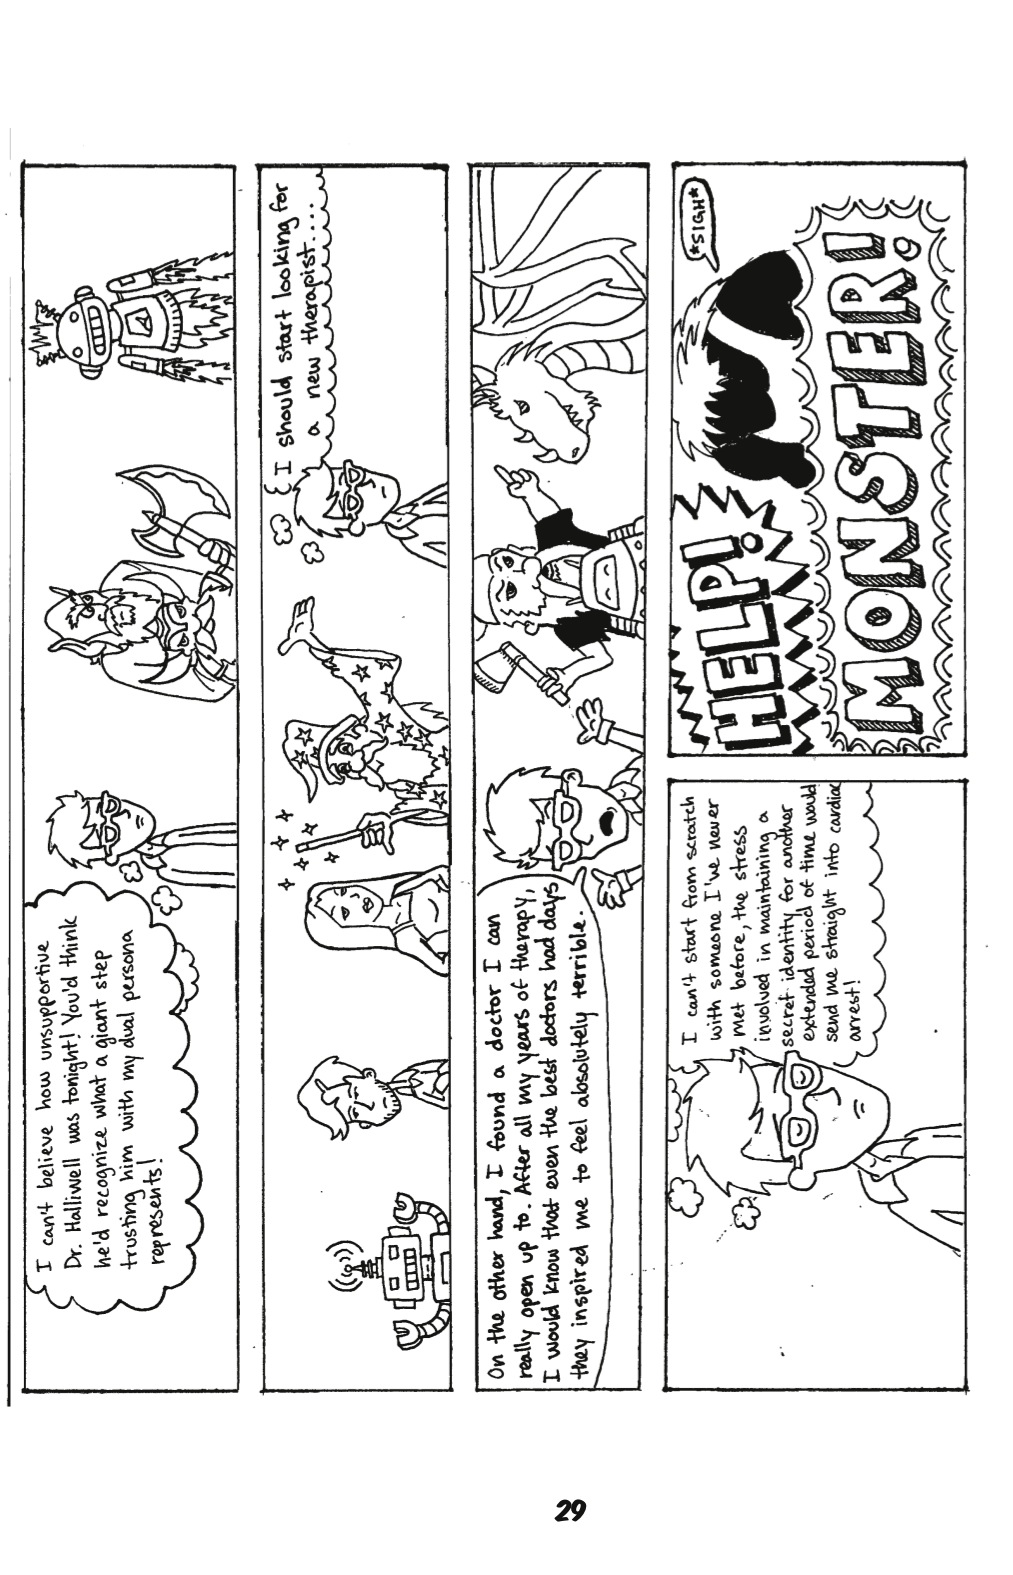 I can't believe how unsupportive
Dr. Halliwell was tonight! You'd think
he'd recognize what a giant step
trusting him with my dual persona
represents!
I should start looking for
a new therapist....
On the other hand, I found a doctor I can
really open up to. After all my years of therapy,
I would know that even the best doctors had days
they inspired me to feel absolutely terrible.
I can't start from scratch
with someone I've never
met before, the stress
involved in maintaining a
secret identity for another
extended period of time would
send me straight into cardiac
arrest!
HELP!
MONSTER!
*SIGH*
29